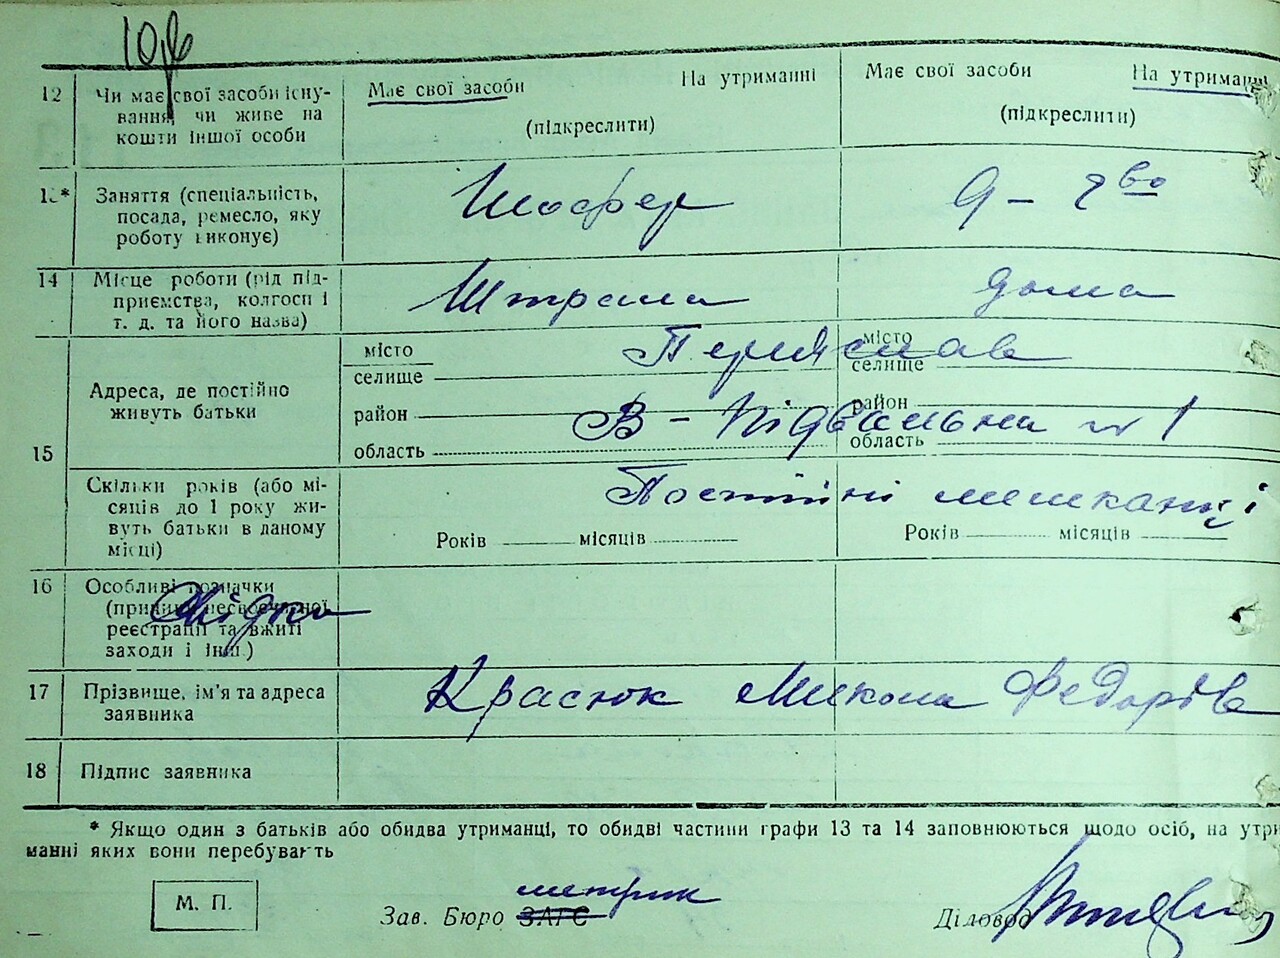 12 Чи має свої засоби існу- Має свої засоби На утриманні Має свої засоби На утриманні
вання, чи живе на (підкреслити) (підкреслити)
кошти іншої особи
13* Заняття (спеціальність, Шофер Д-гво
посада, ремесло, яку
роботу виконує)
14 Місце роботи (рід під- дома
приємства, колгосп і
т. д. та його назва)
15 Адреса, де постійно живуть батьки
місто Переяслав місто
селище селище
район В-Підвальна № 1 район
область область
Скільки років (або мі- Постійні мешканці
сяців до 1 року жи-
вуть батьки в даному Років місяців Років місяців
місці)
16 Особливі позначки
(причини несвоєчасної
реєстрації та вжиті
заходи і інш.)
17 Прізвище, ім'я та адреса Красюк Микола Федорів
заявника
18 Підпис заявника
* Якщо один з батьків або обидва утриманці, то обидві частини графи 13 та 14 заповнюються щодо осіб, на утри
манні яких вони перебувають
метрик
М. П. Зав. Бюро ЗАГС Діловод